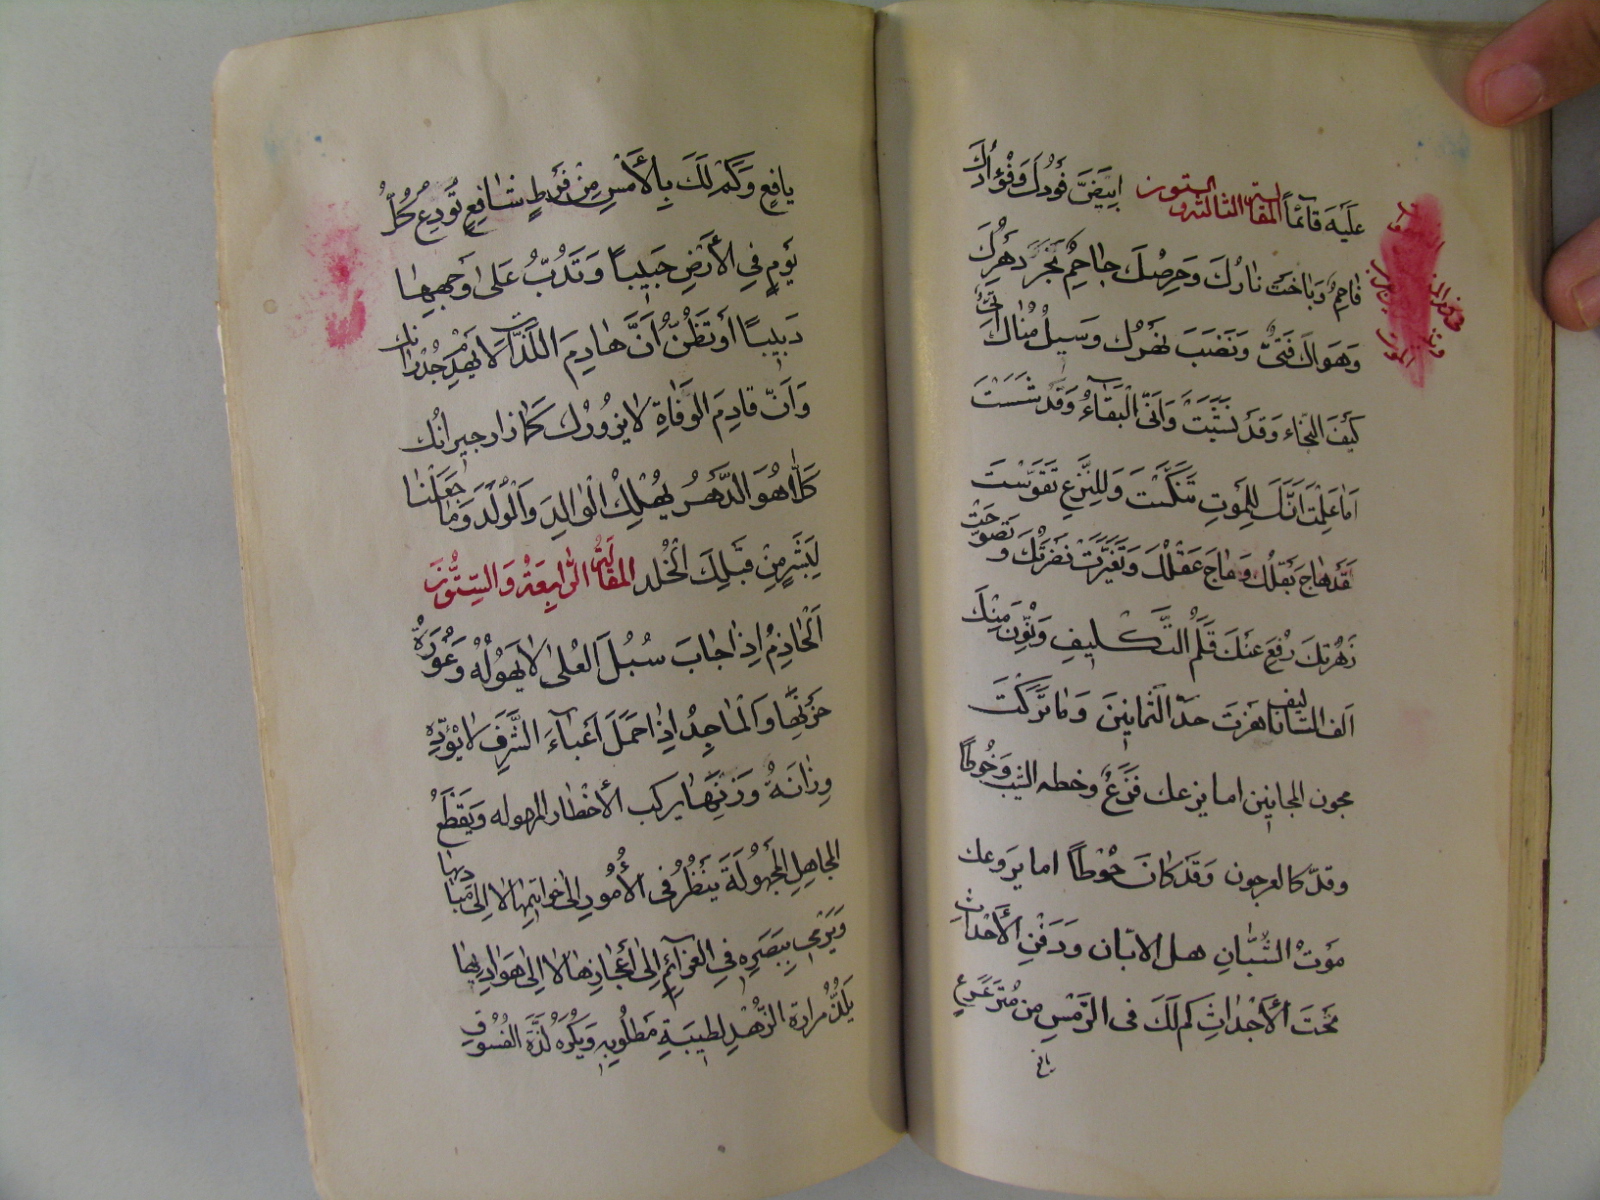 عَلَيْهَ قَآئِمًا المقالة الثالثة والستون ابيَضَّ فَودُكَ وَفُؤَادُكَ
فَاحِمٌ وَبَاخَتْ نَارُكَ وَحِرصُكَ جَاحِمٌ نَجَرَ دَهْرُكَ
وَهَوَاكَ فَتِىٌّ وَنَضَبَ نَهَرُكَ وَسَيلُ مُنَاكَ اَتِىٌّ
كَيْفَ النجَاء وَقَدْ نَشِبْتَ وَاَنَّى الْبَقَآءُ وَقَدْ
اَمَا عَلِمْتَ اَنَّكَ لِلْمَوْتِ تَنَكَّسْتَ وَلِلنَّزْعِ تَقَوَّسْتَ
قَدْ هَاجَ بَقْلُكَ وَمَاجَ عَقْلُكَ وَتَغَيَّرَتْ نَضْرَتُكَ وَ تَصَوَّحَتْ
زَهْرَتُكَ رُفِعَ عَنْكَ قَلَمُ التَّكْلِيفِ مِنْكَ
اَلِفُ التَّاليف نَاهَزْتَ حَدَّ الثمَانِينَ وَمَا تَرَكْتَ
مجون المجانين اما يزعك فَزَعٌ وخطه الشيب وَخُوطًا
وقدّ كالعرجون وَقَدْ كَانَ خُوطًا اما يَرَوعك
مَوْتُ الشُّبَّانِ هل الابّان وَدَفْنِ الأَحْدَاثِ
تَحْتَ الأَجْدَاثِ كَم لَكَ فى الرَّمْسِ مِن مُتَرَعْرِعٍ
يافع
يَافِعٍ وَكَمْ لَكَ بِالأَمْسِ مِنْ فَرَطٍ شَافِعٍ تُوَدِعُ كُلَّ
يَوْمٍ فِي الأَرْضِ حَبِيبًا وَتَدُبُّ عَلَى اَوْجُهِهَا
دَبِيبًا أَوَتَظُنُّ اَنَّ هَادِمَ اللَّذَّاتِ لَا يَهْدِمُ جُدْرَانك
وَاَنّ قادِمَ الوَفَاةِ لَا يَزُورُكَ كَمَا زار جيرانُك
كَلَّا هُوَ الدَّهْرُ يُهْلِكُ الْوَالِدَ وَالْوَلَدَ وَمَا جَعَلْنَا
لِبَشَرٍ مِنْ قَبْلِكَ الْخُلد المقالة الرَّابِعَةُ وَالسِتُّونَ
اَلْحَازِمُ اِذَا جَابَ سُبُلَ العُلى لَا يَهُولُهُ وَعُورَةُ
حَزْنِهَا وَالْمَاجِدُ اِذَا حَمَلَ اَعْبَآءَ الشَّرَفِ لَا يَؤُدِهِ
رِزَانَةُ وَزْنِهَا يركب الأخطار المهوله وَيَقْطَعُ
المجاهِلَ المَجْهُولَةَ يَنْظُرُ فى الأُمُورِ اِلى خَوَاتِمِهَا لَا اِلى مَبَادِيهَا
وَيَرْمِى بِبَصَرِهِ فِي العَزَآئِمِ اِلى أَعْجَازِهَا لَا اِلى هَوَادِيهَا
يَلَذُّ مُرَارَةَ الزُّهْدِ لِطِيبَةِ مَطْلُوبِهِ وَيَكْرَهُ لَذَّةَ الفُسُوقِ